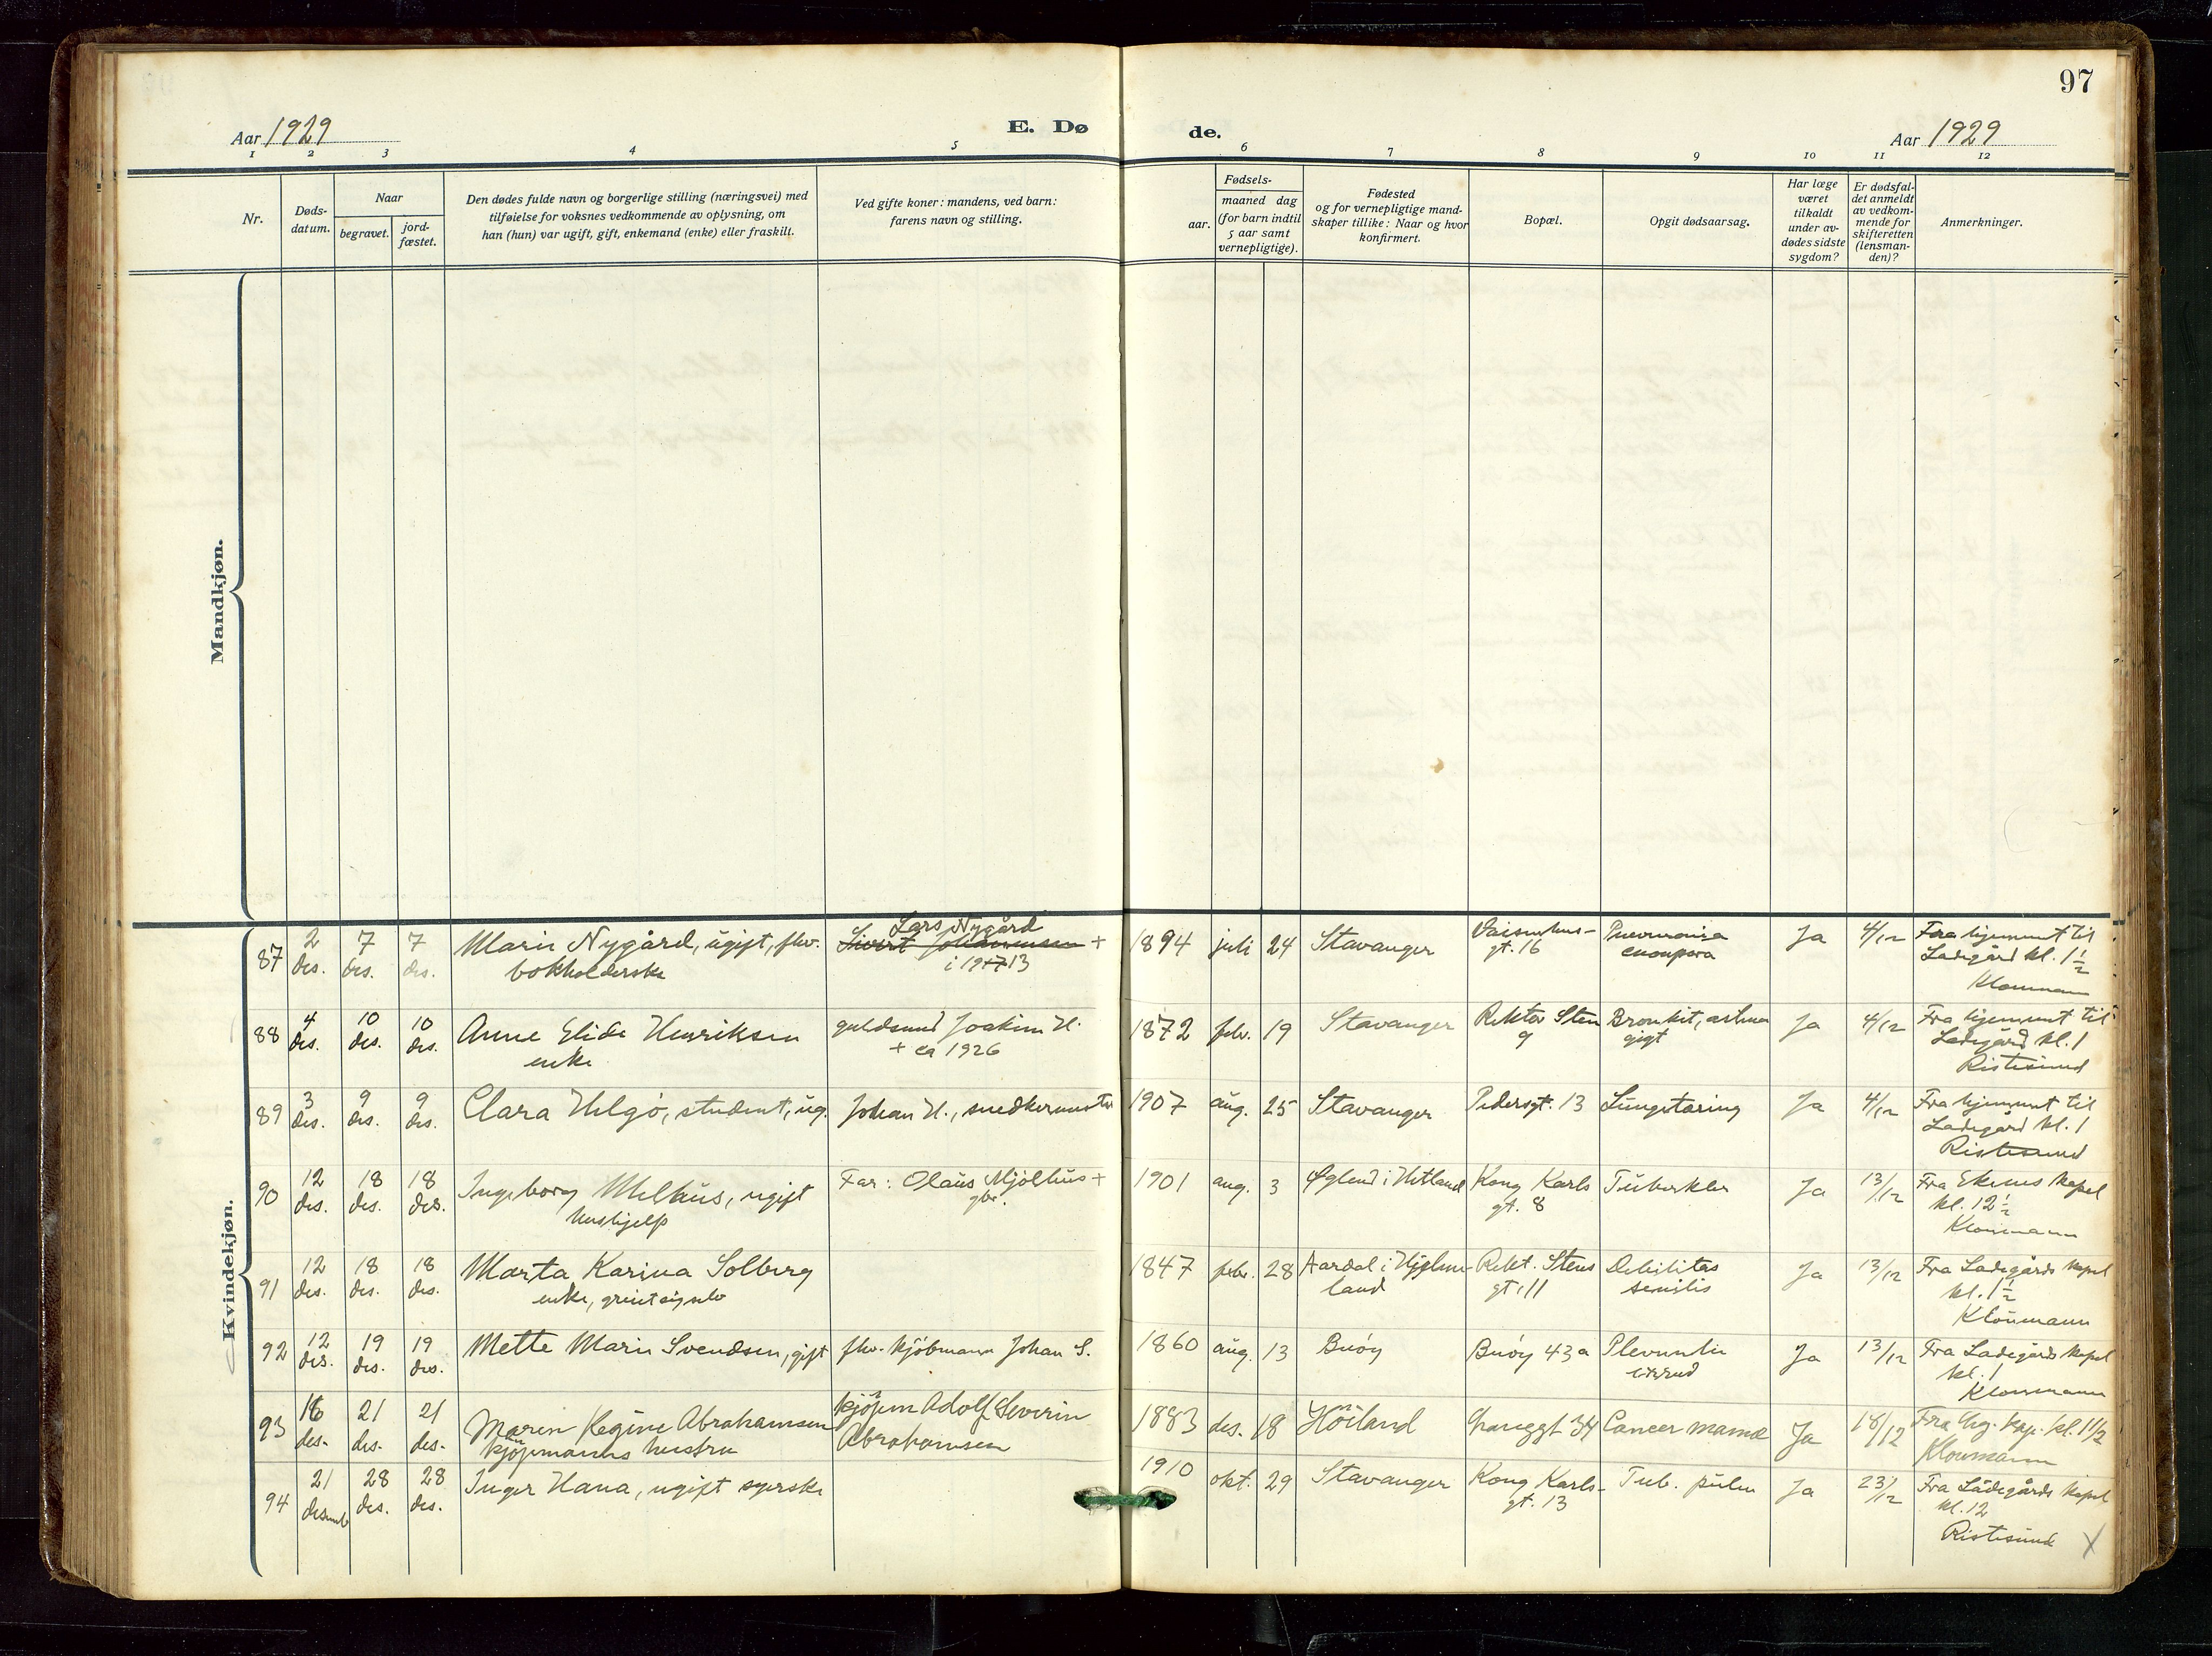 97
Aar 1929
E. Dø
de.
Aar 1929
1 2 3 4 5 6 7 8 9 10 11 12
Nr.
Døds-
datum.
Naar
begravet.
jord-
fæstet.
Den dødes fulde navn og borgerlige stilling (næringsvei) med
tilføielse for voksnes vedkommende av oplysning, om
han (hun) var ugift, gift, enkemand (enke) eller fraskilt.
Ved gifte koner: mandens, ved barn:
farens navn og stilling.
Fødsels-
aar.
maaned dag
(for barn indtil
5 aar samt
vernepligtige).
Fødested
og for vernepligtige mand-
skaper tillike: Naar og hvor
konfirmert.
Bopæl.
Opgit dødsaarsag.
Har læge
været
tilkaldt
under av-
dødes sidste
sygdom?
Er dødsfal-
det anmeldt
av vedkom-
mende for
skifteretten
(lensman-
den)?
Anmerkninger.
Mandkjøn.
Kvindekjøn.
87 2 des. 7 des. 7 des. Marie Nygård, ugift, fhv.
bokholderske
Lars Nygård
Sivert Johannessen +
i 1917 13
1894 juli 24 Stavanger Vaisenhus-
gt. 16
Pneumonia
crouposa
Ja 4/12 Fra hjemmet til
Ladegård kl. 1½
Kloumann
88 4 des. 10 des. 10 des. Anne Elide Henriksen
enke
guldsmed Joakim H.
+ ca 1926
1872 febr. 19 Stavanger Rektor Sten
9
Bronkit, astma
gigt
Ja 4/12 Fra hjemmet til
Ladegård kl. 1
Ristesund
89 3 des. 9 des. 9 des. Clara Helgø, student, ug.
Johan H., snedkermester
1907 aug. 25 Stavanger Pedersgt. 13 Lungetæring Ja 4/12 Fra hjemmet til
Ladegård kl. 1
Ristesund
90 12 des. 18 des. 18 des. Ingeborg Melhus, ugift
hushjelp
Far: Olaus Mjölhus +
gbr.
1901 aug. 3 Øglend i Hetland Kong Karls
gt. 8
Tuberkler Ja 13/12 Fra Ekenes kapel
kl. 12½
Kloumann
91 12 des. 18 des. 18 des. Marta Karina Solberg
enke,
1847 febr. 28 Aardal i Hjelme-
land
Rekt. Stens
gt. 11
Debilitas
senilis
Ja 13/12 Fra Ladegårds kapel
kl. 1½
Kloumann
92 12 des. 19 des. 19 des. Mette Marie Svendsen, gift
fhv. kjöbmann Johan S.
1860 aug. 13 Buöy Buöy 43a
Ja 13/12 Fra Ladegårds kapel
kl. 1
Kloumann
93 16 des. 21 des. 21 des. Maren Regine Abrahamsen
kjöpmanns hustru
kjöpm Adolf Severin
Abrahamsen
1883 des. 18 Höiland 34 Cancer mamæ Ja 18/12 Fra kap. kl. 1½
Kloumann
94 21 desemb 28 des. 28 des. Inger Hana, ugift syerske
1910 okt. 29 Stavanger Kong Karls-
gt. 13
Tub. pulm Ja 23/12 Fra Ladegårds kapel
kl. 12
Ristesund X